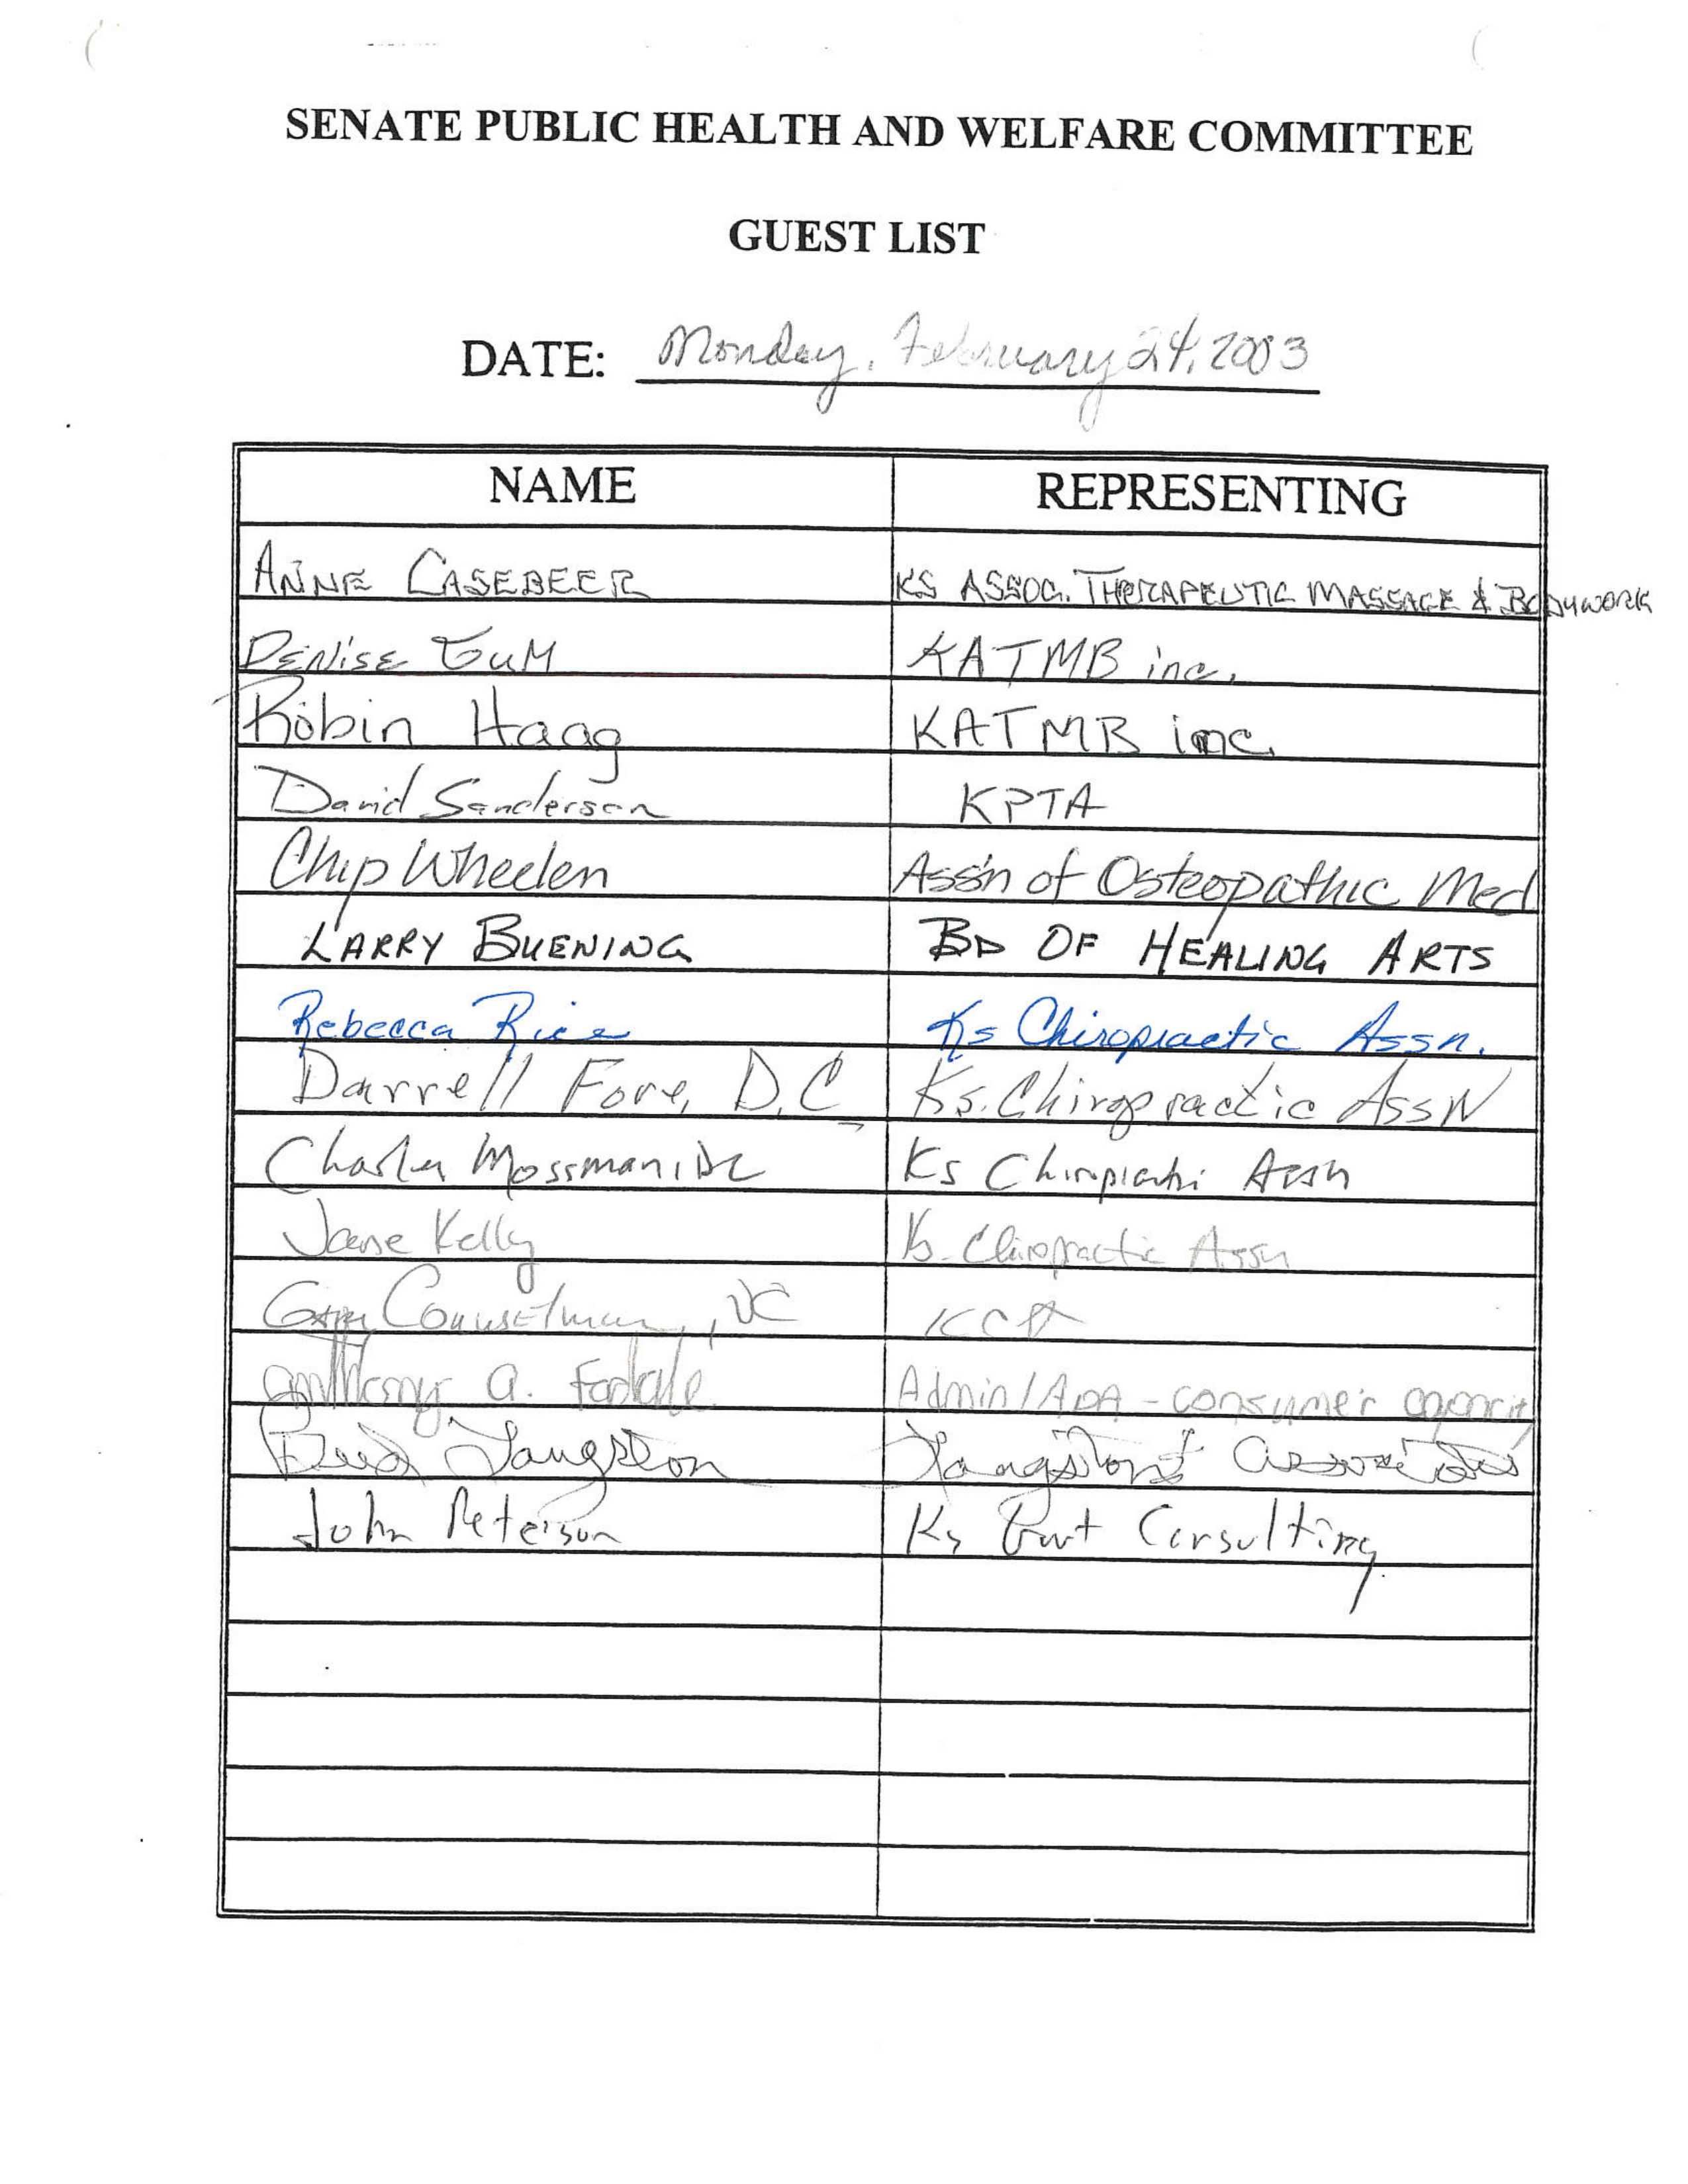 SENATE PUBLIC HEALTH AND WELFARE COMMITTEE
GUEST LIST
DATE: Monday, February 24, 2003
NAME REPRESENTING
ANNE CASEBEER KS ASSOC. THERAPEUTIC MASSAGE & BODYWORK
DENiSE GuM KATMB inc.
Robin Haag KATMB inc.
David Sanderson KPTA
Chip Wheelen Ass'n of Osteopathic Med
LARRY BUENING BD OF HEALING ARTS
Rebecca Rice Ks Chiropractic Assn.
Darrell Fore, D.C Ks. Chiropractic AssN
Mossman, DC Ks Chiropractic Assn
Kelly Ks. Chiropractic Assn
Gary Counselman, DC KCA
Anthony A. Admin/ADA - consumer
Langston Langston & Associates
John Peterson Ks Govt Consulting